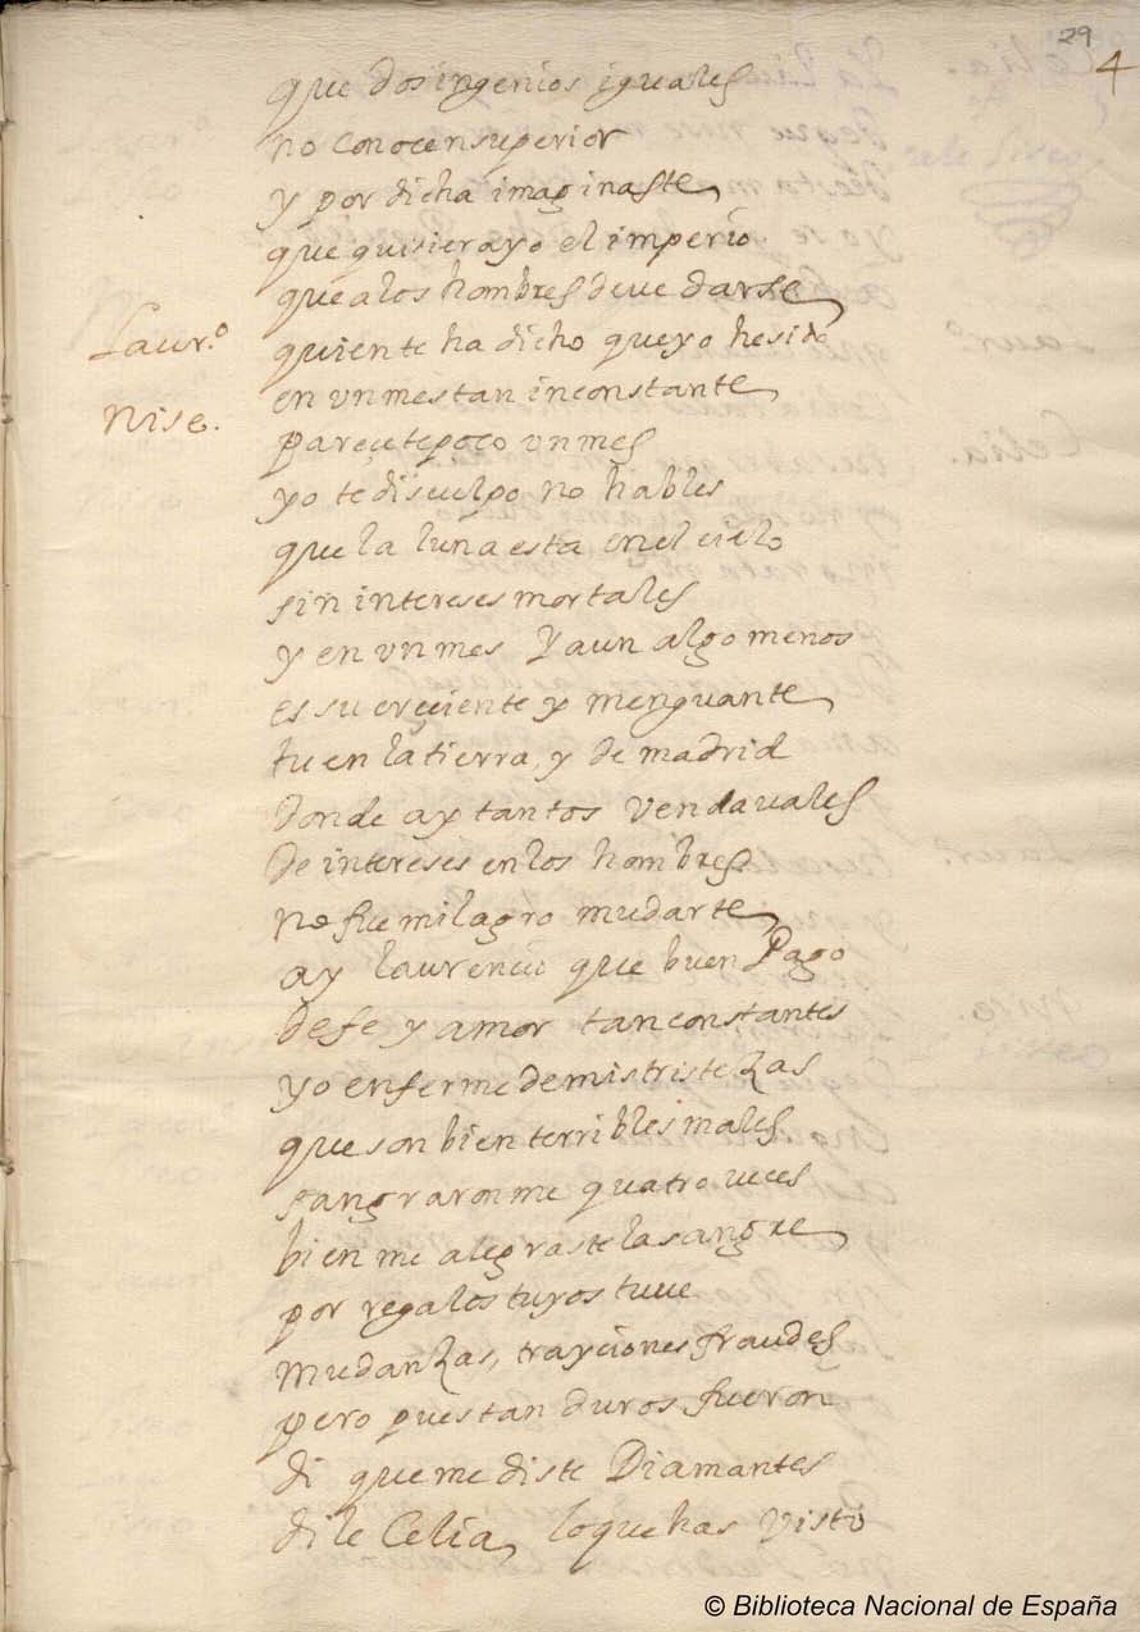 29
4
que dos ingenios iguales
no conocen superior
y por dicha imaginaste
que quisiera yo el imperio
que a los hombres deue darse
Laur.º quien te ha dicho que yo he sido
en vn mes tan inconstante
Nise. pareçete poco vn mes
yo te disculpo no hables
que la luna esta en el cielo
sin intereses mortales
y en vn mes y aun algo menos
es su creçiente y menguante
tu en la tierra, y de madrid
donde ay tantos vendauales
de intereses en los hombres
no fue milagro mudarte
ay laurencio que buen Pago
de fe y amor tan constantes
yo enferme de mis tristezas
que son bien terribles males
sangraronme quatro veces
bien me alegraste la sangre
por regalos tuyos tuue
mudanzas, trayciones fraudes
pero pues tan duros fueron
di que me diste Diamantes
dile Celia, lo que has visto
© Biblioteca Nacional de España